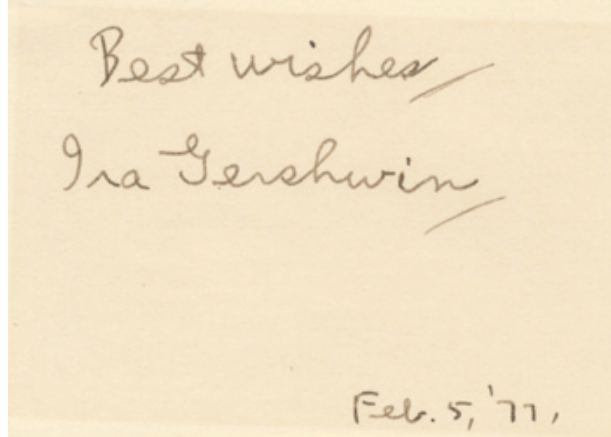 Best wishes
Ira Gershwin
Feb. 5, '77.